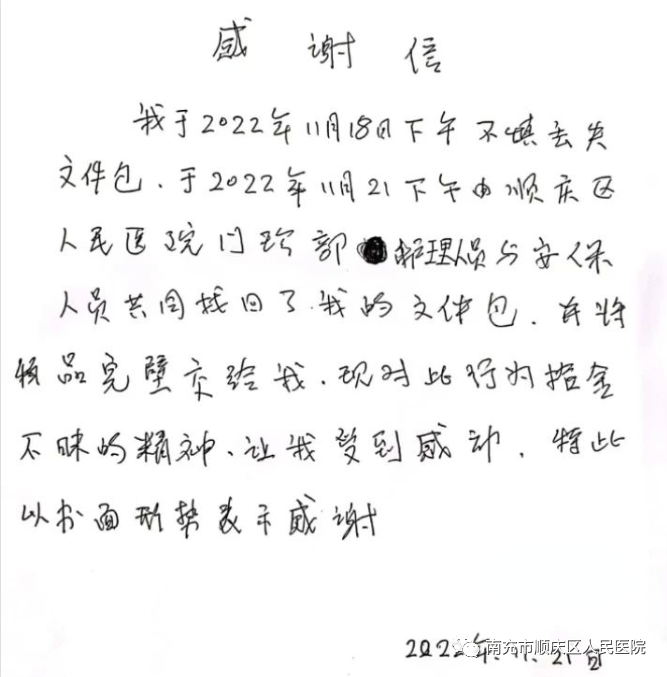 感谢信
我于2022年11月18日下午不慎丢失
文件包、于2022年11月21下午由顺庆区
人民医院门珍部护理人员与安保
人员共同找回了我的文件包、并将
物品完璧交给我、现对此行为拾金
不昧的精神、让我受到感动、特此
以书面形势表示感谢
2022年.11.21日
南充市顺庆区人民医院